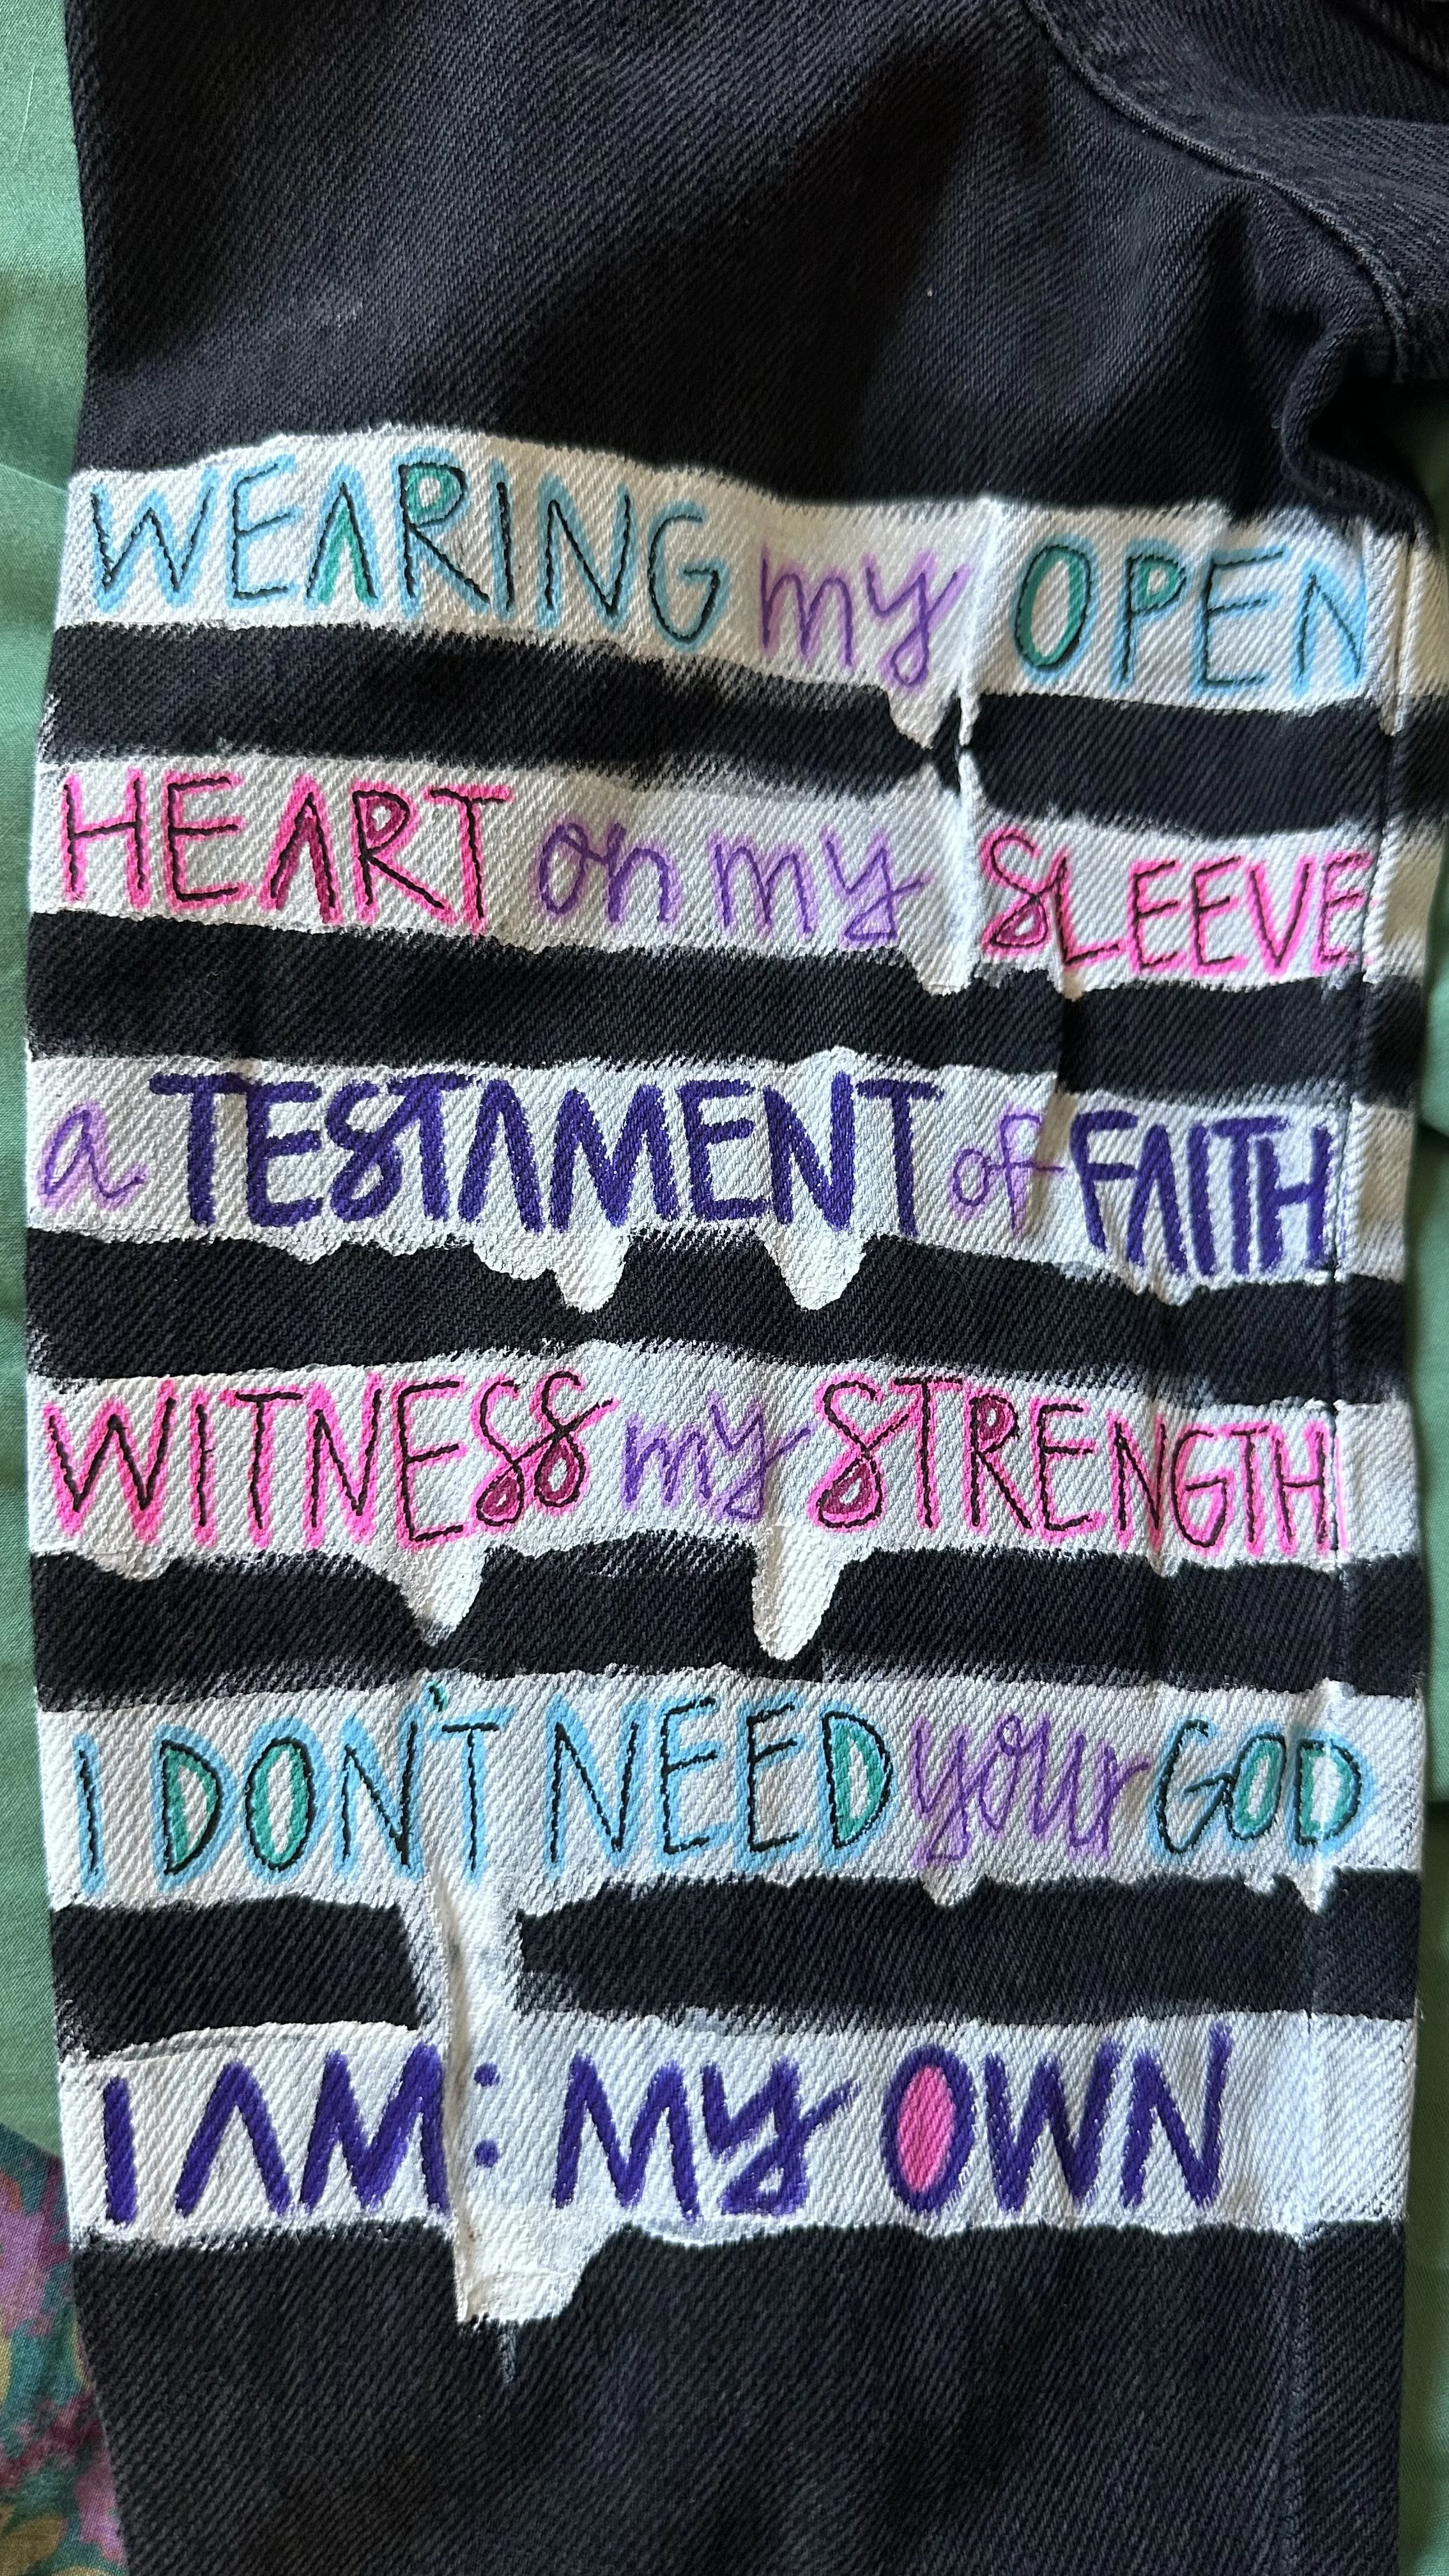 WEARING my OPEN
HEART on my SLEEVE
a TESTAMENT of FAITH
WITNESS my STRENGTH
I DON'T NEED your GOD
I AM: My OWN